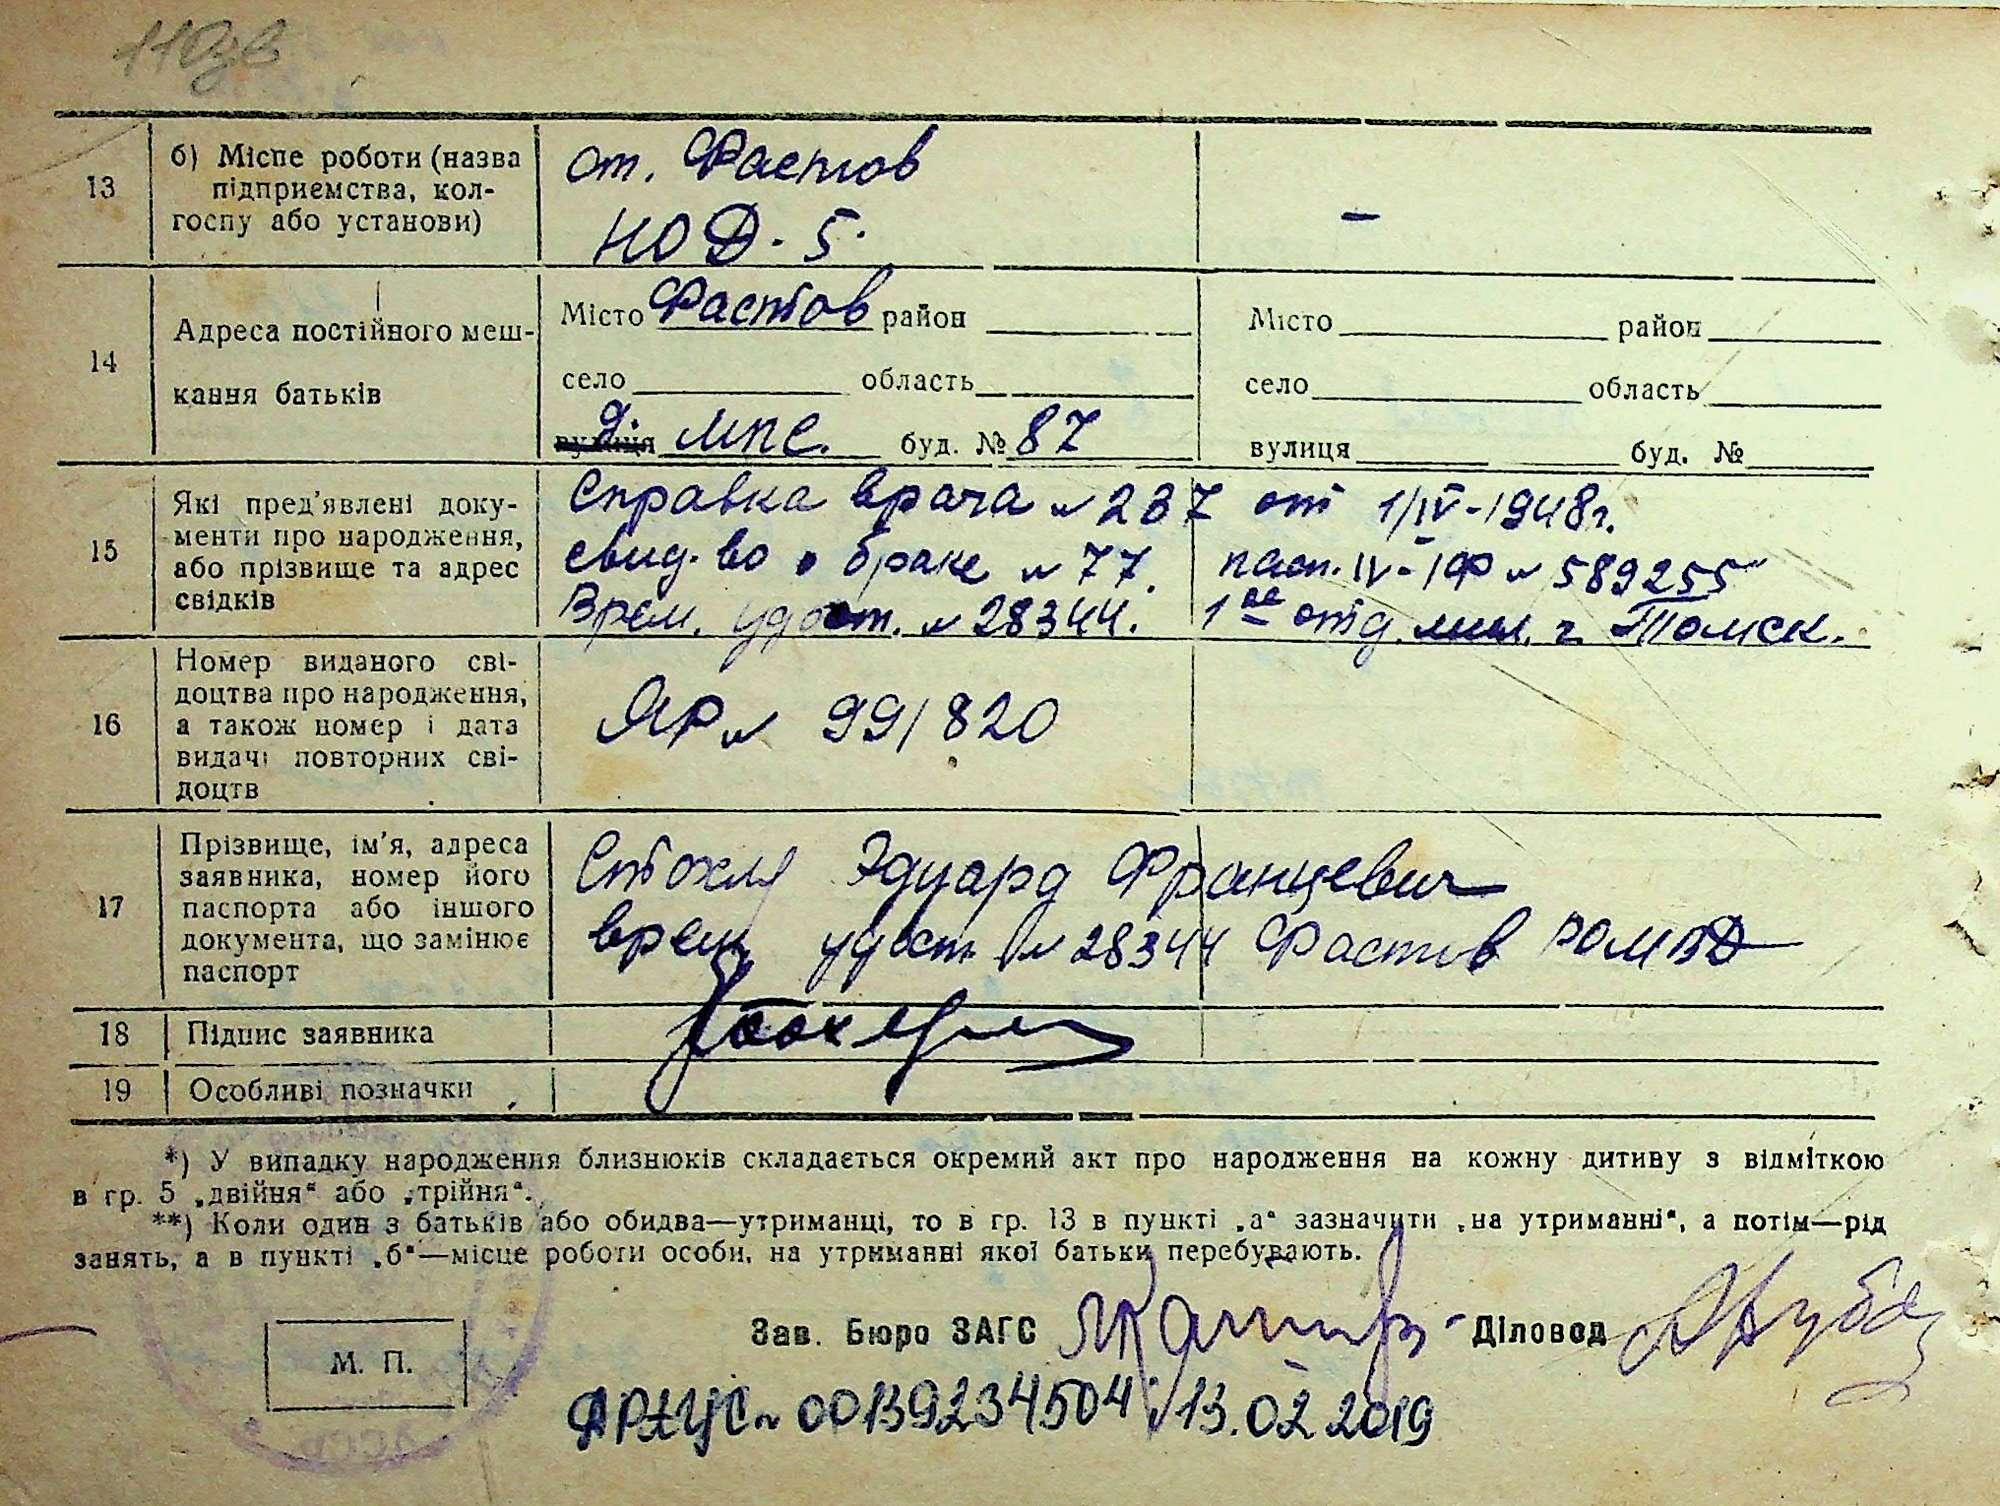 13
б) Місце роботи (назва
підприємства, кол-
госпу або установи)
ст. Фастов
НОД. 5.
–
14
Адреса постійного меш-
кання батьків
Місто Фастов район
село область
вулиця Д. МПС. буд. № 87
Місто район
село область
вулиця буд. №
15
Які пред'явлені доку-
менти про народження,
або прізвище та адрес
свідків
Справка врача № 237 от 1/IV-1948г.
свид-во о браке № 77. пасп. IV-ІФ № 589255
Врем. удост. № 28344. 1ое отд. мил. г. Томск.
16
Номер виданого сві-
доцтва про народження,
а також номер і дата
видачі повторних сві-
доцтв
ЯР № 99/820
17
Прізвище, ім'я, адреса
заявника, номер його
паспорта або іншого
документа, що замінює
паспорт
Эдуард Францевич
врем. удост. № 28344 Фастов РОМВД
18
Підпис заявника
19
Особливі позначки
*) У випадку народження близнюків складається окремий акт про народження на кожну дитину з відміткою
в гр. 5 „двійня“ або „трійня“.
**) Коли один з батьків або обидва—утриманці, то в гр. 13 в пункті „а“ зазначити „на утриманні“, а потім—рід
занять, а в пункті „б“—місце роботи особи, на утриманні якої батьки перебувають.
Зав. Бюро ЗАГС
Діловод
М. П.
АРАЦС № 00139234504 13.02.2019